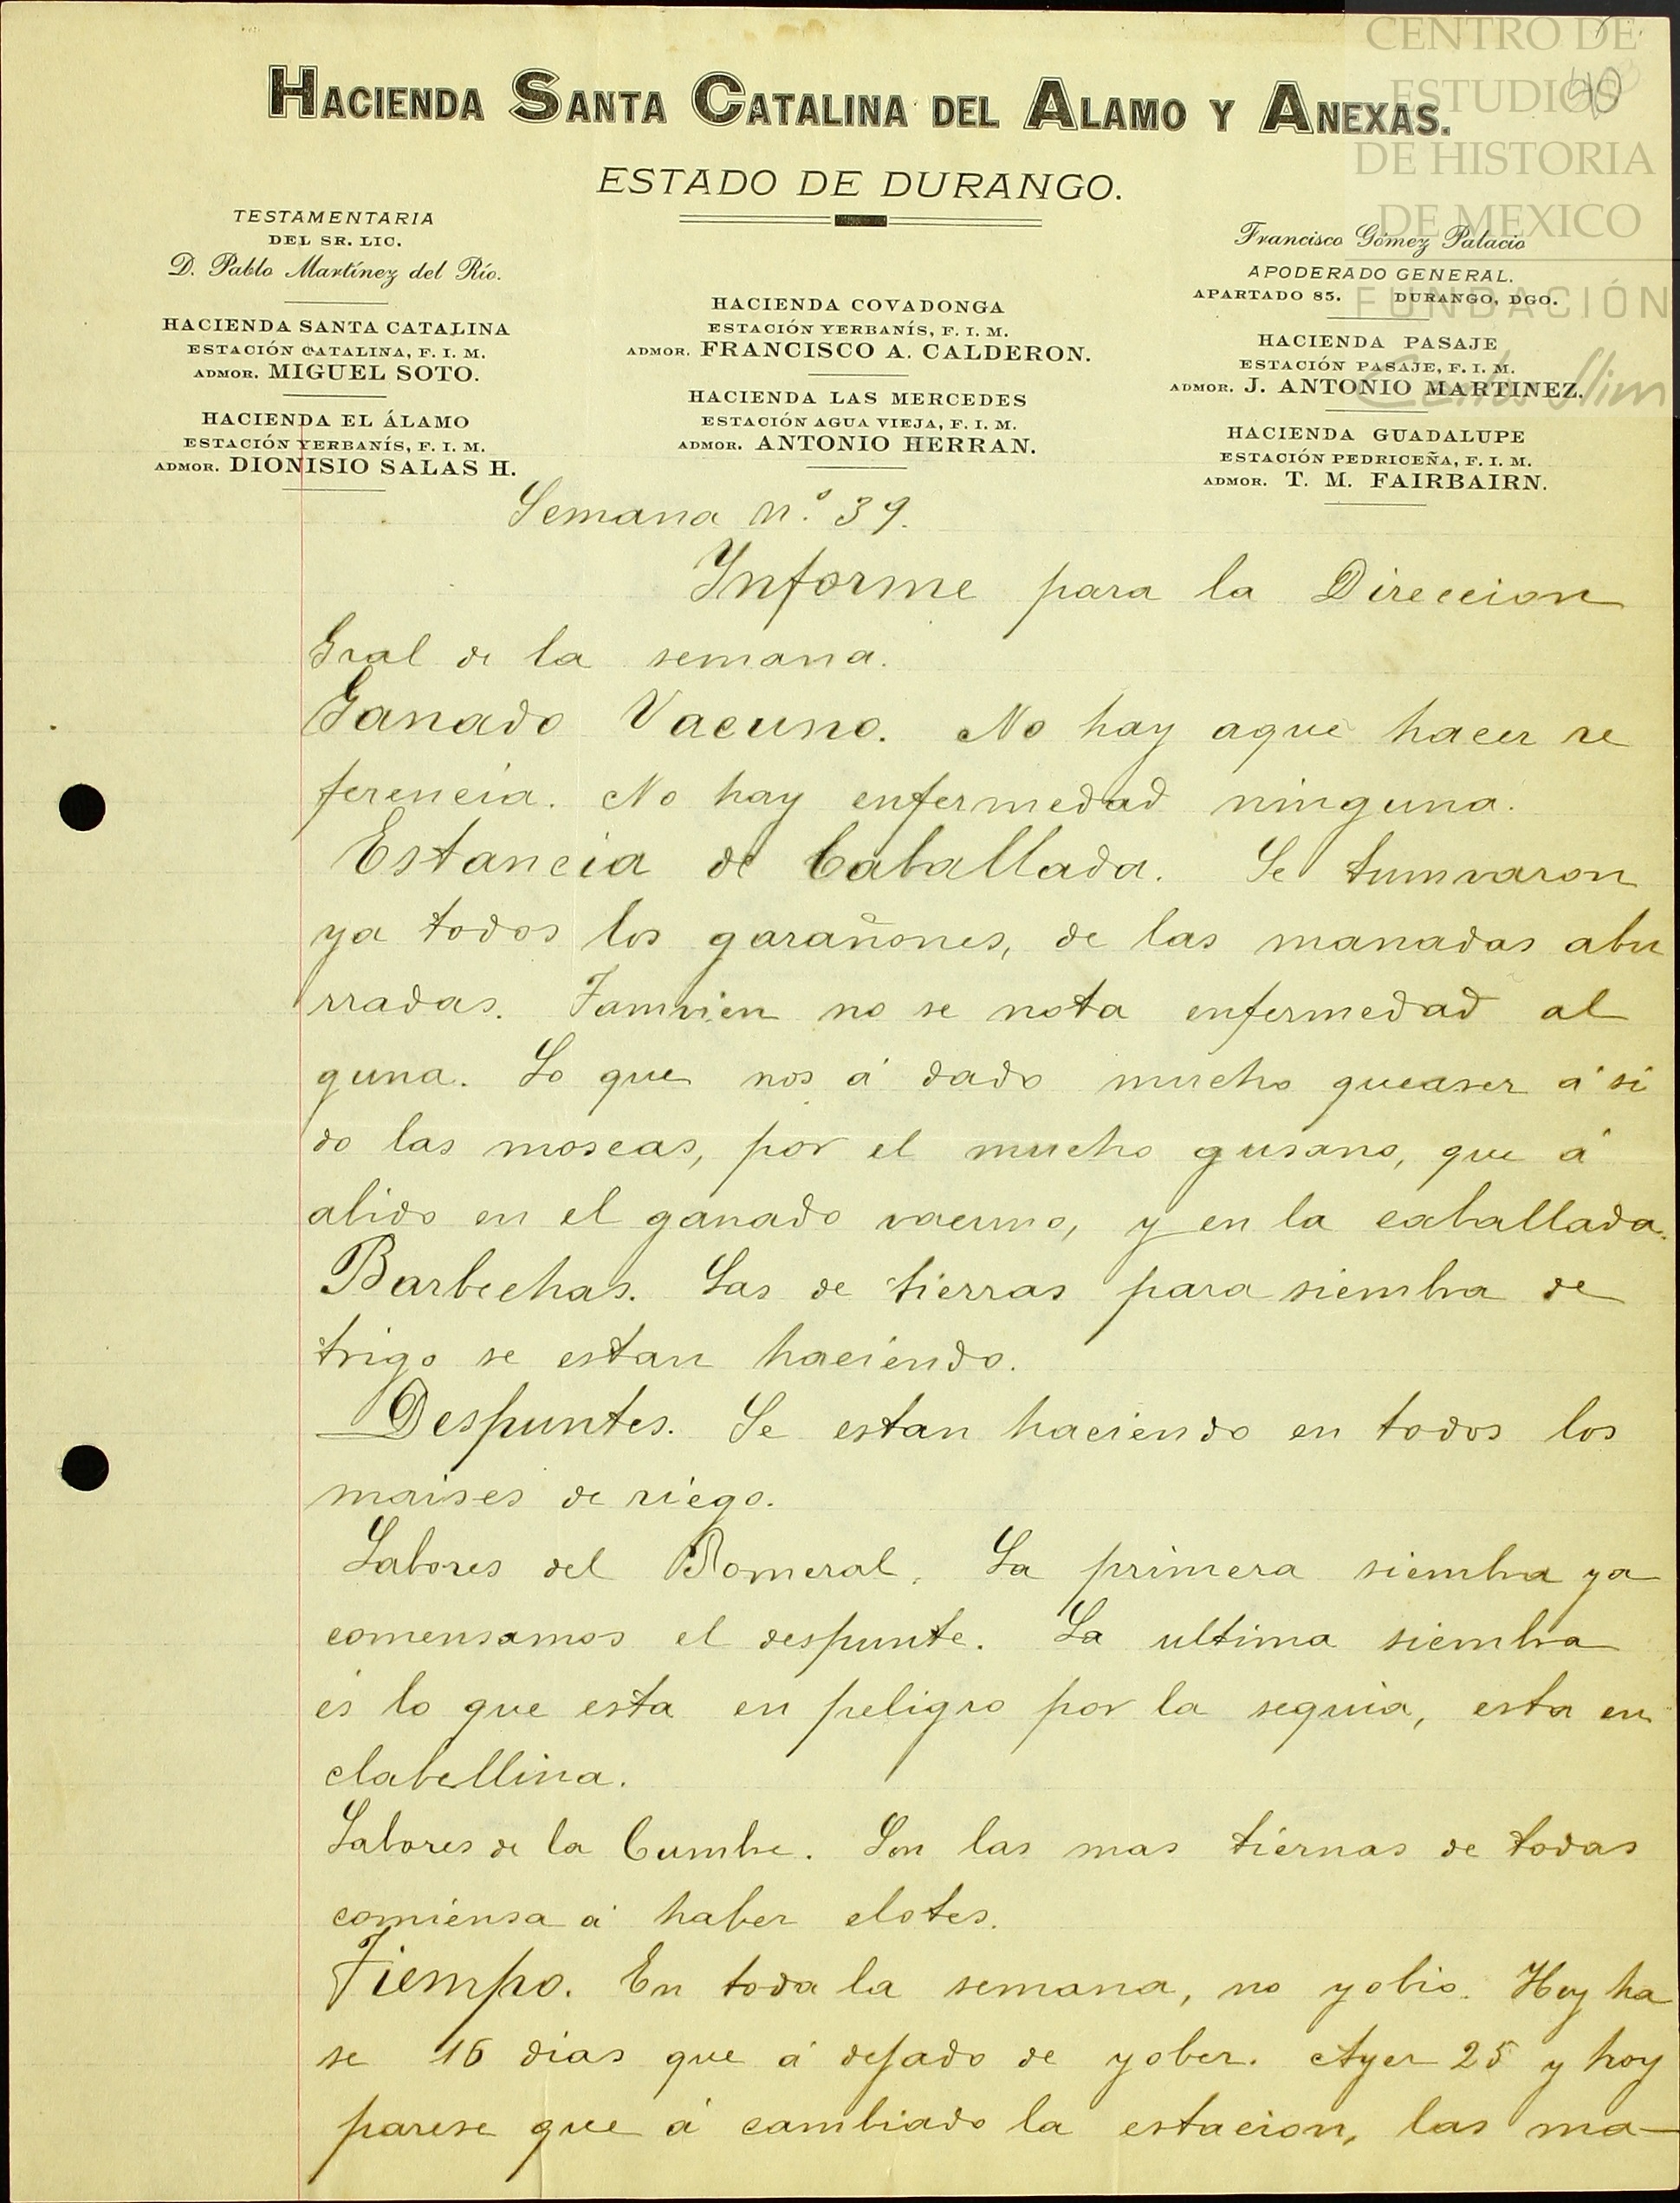 CENTRO DE
ESTUDIOS
DE HISTORIA
DE MEXICO
FUNDACIÓN
Carlos Slim
40
HACIENDA SANTA CATALINA DEL ALAMO Y ANEXAS.
ESTADO DE DURANGO.
TESTAMENTARIA
DEL SR. LIC.
D. Pablo Martínez del Río.
HACIENDA SANTA CATALINA
ESTACIÓN CATALINA, F. I. M.
ADMOR. MIGUEL SOTO.
HACIENDA EL ÁLAMO
ESTACIÓN YERBANÍS, F. I. M.
ADMOR. DIONISIO SALAS H.
HACIENDA COVADONGA
ESTACIÓN YERBANÍS, F. I. M.
ADMOR. FRANCISCO A. CALDERON.
HACIENDA LAS MERCEDES
ESTACIÓN AGUA VIEJA, F. I. M.
ADMOR. ANTONIO HERRAN.
Francisco Gómez Palacio
APODERADO GENERAL.
APARTADO 85. DURANGO, DGO.
HACIENDA PASAJE
ESTACIÓN PASAJE, F. I. M.
ADMOR. J. ANTONIO MARTINEZ.
HACIENDA GUADALUPE
ESTACIÓN PEDRICEÑA, F. I. M.
ADMOR. T. M. FAIRBAIRN.
Semana n.º 39.
Informe para la Direccion
Gral de la semana.
Ganado Vacuno. No hay aque hacer re
ferencia. No hay enfermedad ninguna.
Estancia de Caballada. Se tumvaron
ya todos los garañones, de las manadas abu
rradas. Tamvien no se nota enfermedad al
guna. Lo que nos á dado mucho queaser á si
do las moscas, por el mucho gusano, que á
abido en el ganado vacuno, y en la caballada.
Barbechas. Las de tierras para siembra de
trigo se estan haciendo.
Despuntes. Se estan haciendo en todos los
maises de riego.
Labores del Romeral. La primera siembra ya
comensamos el despunte. La ultima siembra
és lo que esta en peligro por la sequia, esta en
clabellina.
Labores de la Cumbre. Son las mas tiernas de todas
comiensa á haber elotes.
Tiempo. En toda la semana, no yobio. Hoy ha
se 16 dias que á dejado de yober. Ayer 25 y hoy
parese que á cambiado la estacion, las ma-